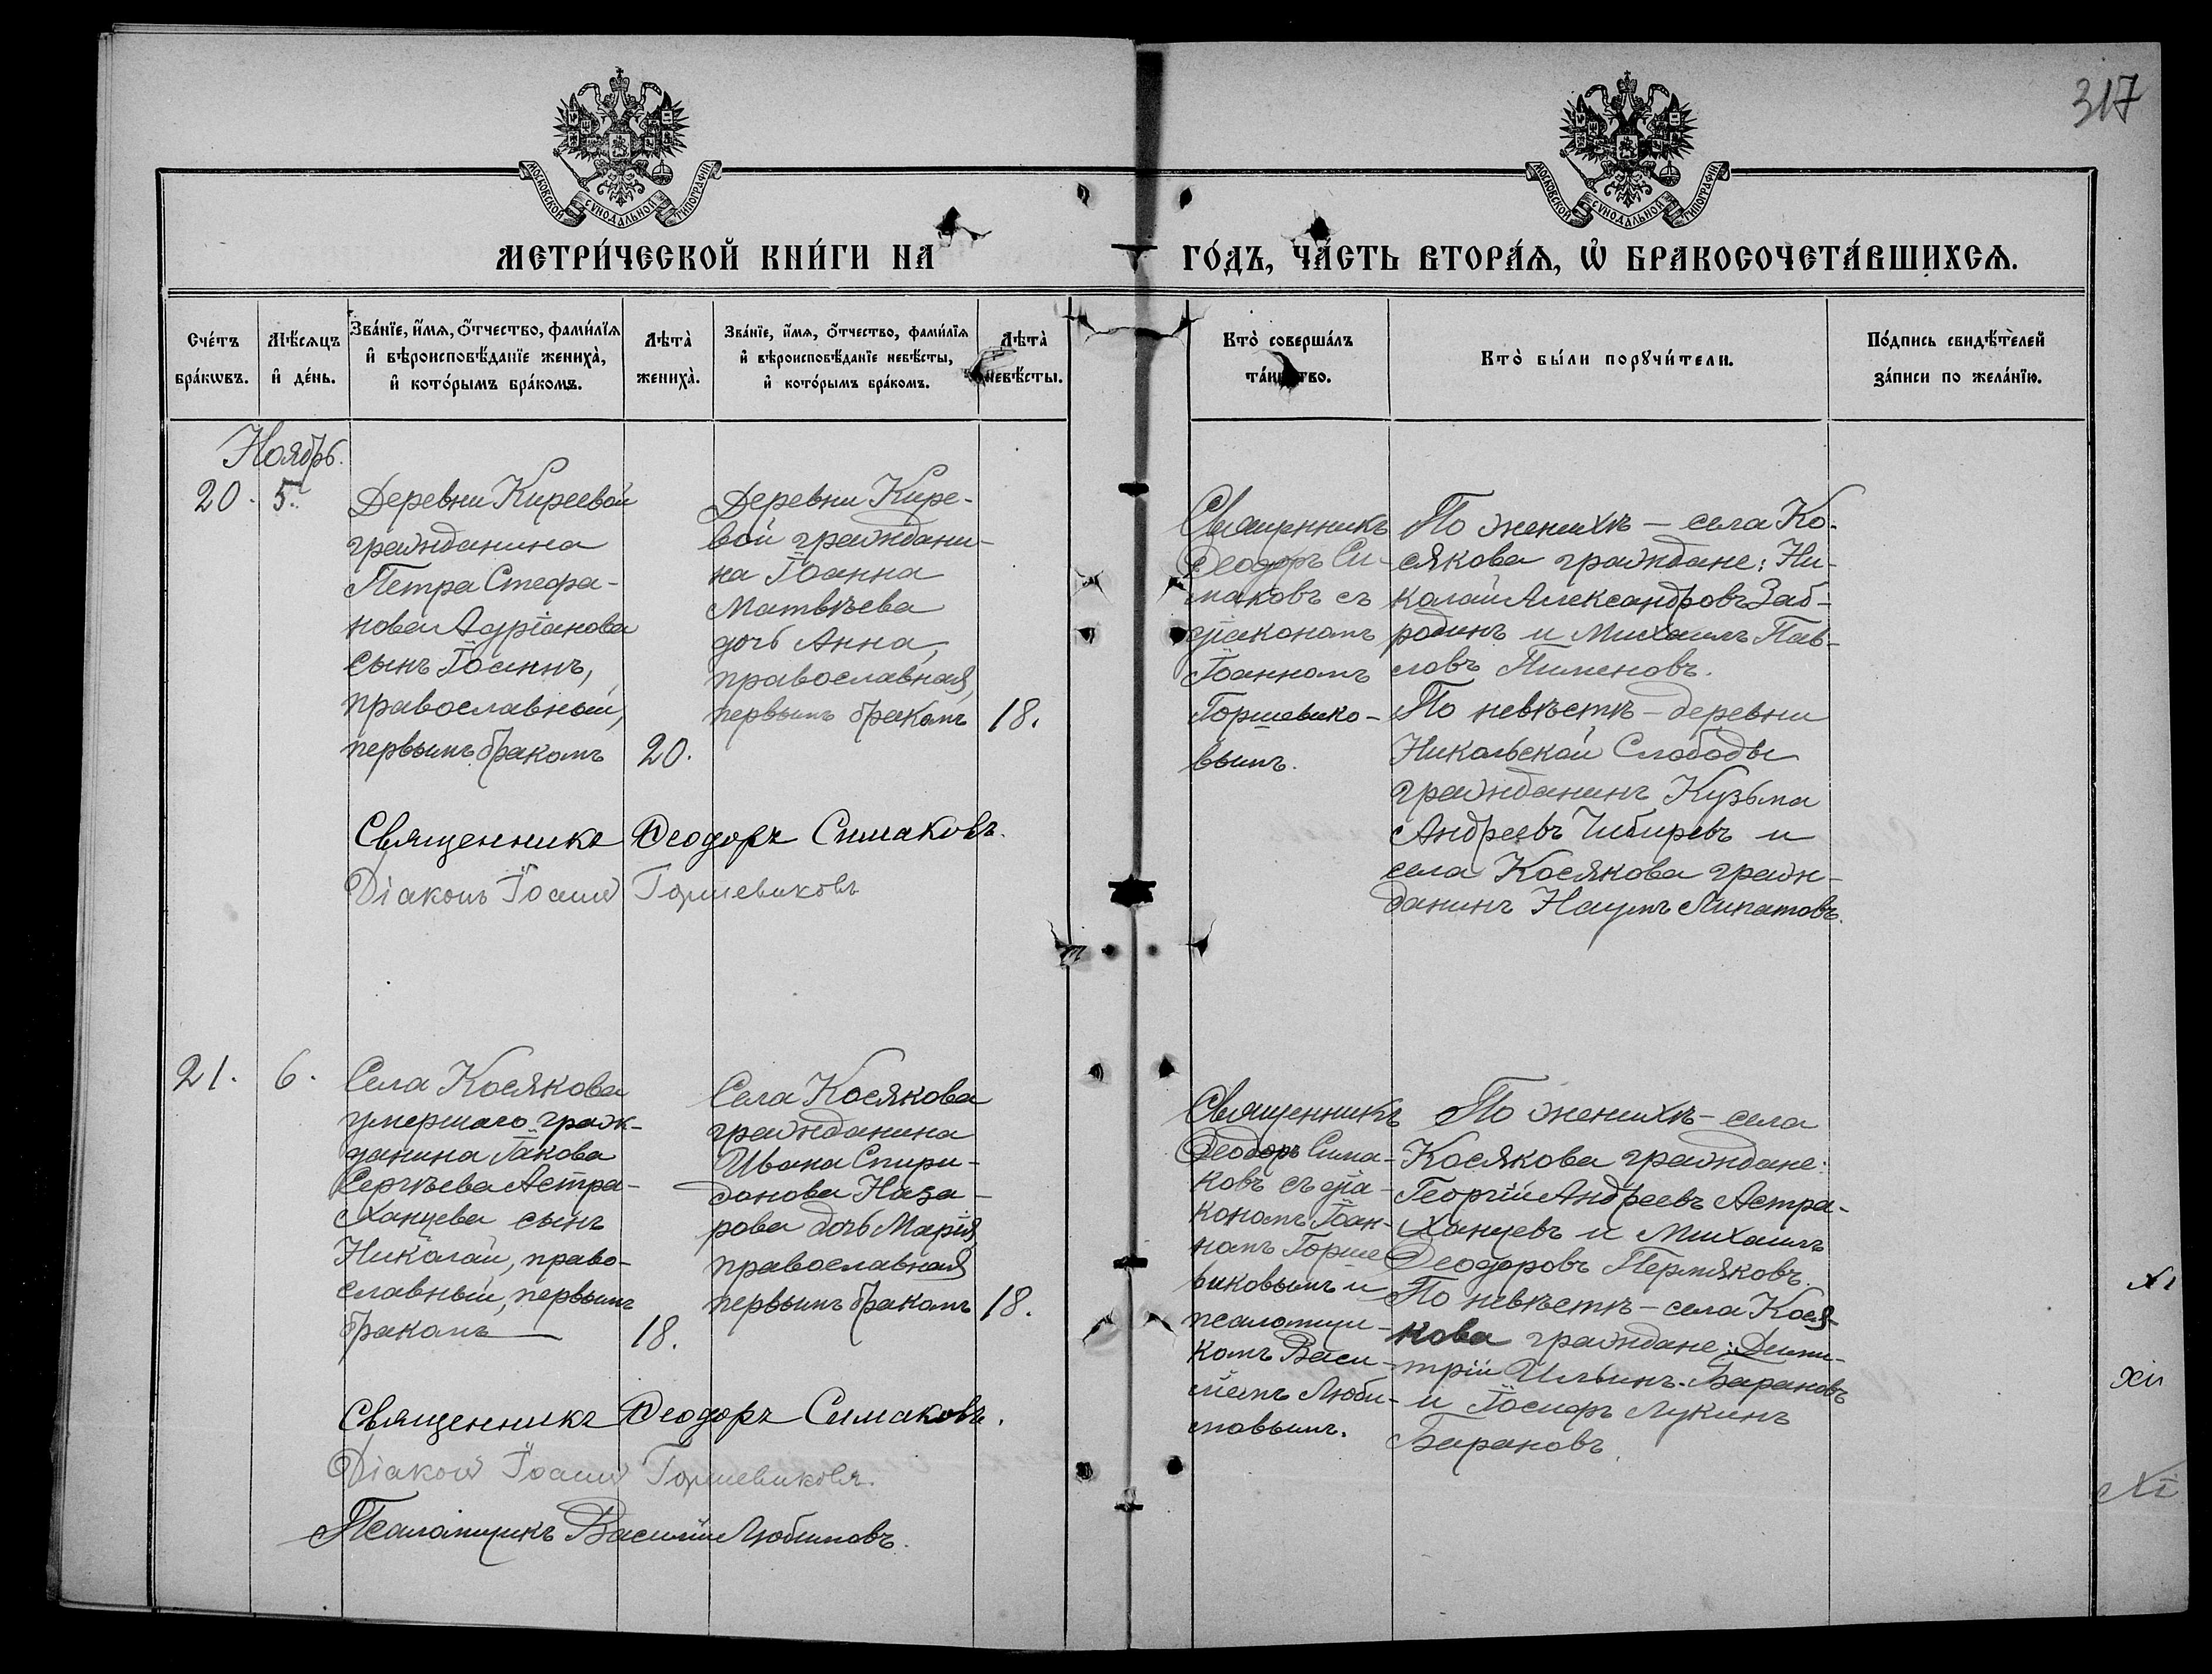 317
МОСКОВСКОЙ СѴНОДАЛЬНОЙ ТИПОГРАФІИ
МОСКОВСКОЙ СѴНОДАЛЬНОЙ ТИПОГРАФІИ
МЕТРИ́ЧЕСКОЙ КНИ́ГИ НА ГО́ДЪ, ЧА́СТЬ ВТОРА́Ѧ, Ѡ҆ БРАКОСОЧЕТА́ВШИХСѦ.
Сче́тъ
бра́кѡвъ.
Мѣ́сѧцъ
и҆ де́нь.
Зва́нїе, и҆́мѧ, ѻ҆́тчество, фами́лїѧ
и҆ вѣроисповѣ́данїе жениха̀,
и҆ кото́рымъ бра́комъ.
Лѣта̀
жениха̀.
Зва́нїе, и҆́мѧ, ѻ҆́тчество, фами́лїѧ
и҆ вѣроисповѣ́данїе невѣ́сты,
и҆ кото́рымъ бра́комъ.
Лѣта̀
невѣ́сты.
Кто̀ соверша́лъ
та́инство.
Кто̀ бы́ли порꙋчи́тели.
По́дпись свидѣ́телей
за́писи по жела́нїю.
Ноябрь.
20. 5.
Деревни Киреевой
гражданина
Петра Стефа-
нова Адріанова
сынъ Іоаннъ,
православный,
первымъ бракомъ
20.
Деревни Кире-
вой граждани-
на Іоанна
Матвѣева
дочь Анна,
православная,
первымъ бракомъ
18.
Священникъ
Ѳеодоръ Си-
маковъ съ
діакономъ
Іоанномъ
Горшевико-
вымъ.
По женихѣ — села Ко-
сякова граждане: Ни-
колай Александровъ Заб-
родинъ и Михаилъ Пав-
ловъ Пименовъ.
По невѣстѣ — деревни
Никольской Слободы
гражданинъ Кузьма
Андреевъ Чибиревъ и
села Косякова граж-
данинъ Наумъ Липатовъ.
Священникъ Ѳеодоръ Симаковъ.
Діаконъ Іоаннъ Горшевиковъ
21. 6.
Села Косякова
умершаго граж-
данина Іакова
Сергѣева Астра-
ханцева сынъ
Николай, право-
славный, первымъ
бракомъ —
18.
Села Косякова
гражданина
Ивана Спири-
донова Наза-
рова дочь Марія,
православная
первымъ бракомъ
18.
Священникъ
Ѳеодоръ Сима-
ковъ съ діа-
кономъ Іоан-
номъ Горше-
виковымъ и
псаломщи-
комъ Васи-
ліемъ Люби-
мовымъ.
По женихѣ — села
Косякова граждане:
Георгій Андреевъ Астра-
ханцевъ и Михаилъ
Ѳеодоровъ Пермяковъ.
По невѣстѣ — села Кося-
кова граждане: Дими-
трій Ильинъ Барановъ
и Іосифъ Лукинъ
Барановъ.
Священникъ Ѳеодоръ Симаковъ.
Діаконъ Іоаннъ Горшевиковъ.
Псаломщикъ Василій Любимовъ.